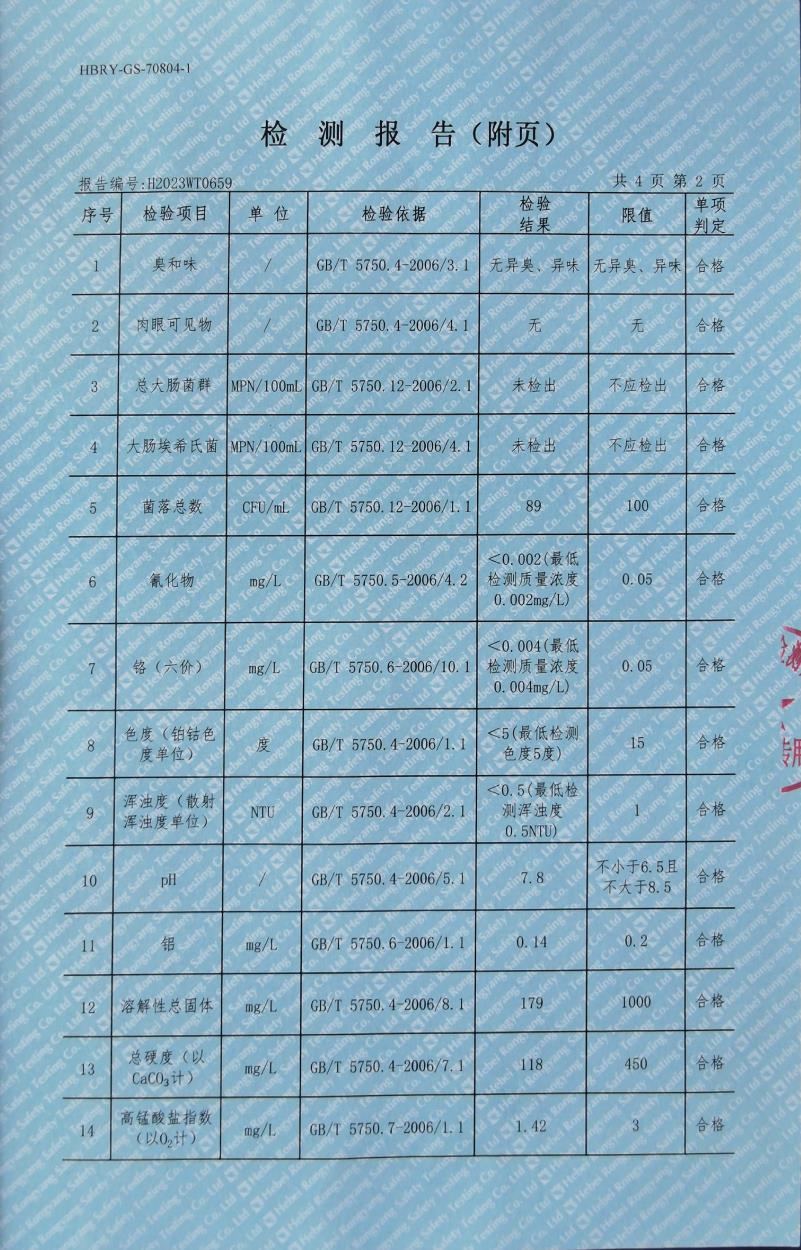 HBRY-GS-70804-1
检 测 报 告（附页）
报告编号:H2023WT0659 共 4 页 第 2 页
序号 检验项目 单 位 检验依据 检验结果 限值 单项判定
1 臭和味 / GB/T 5750.4-2006/3.1 无异臭、异味 无异臭、异味 合格
2 肉眼可见物 / GB/T 5750.4-2006/4.1 无 无 合格
3 总大肠菌群 MPN/100mL GB/T 5750.12-2006/2.1 未检出 不应检出 合格
4 大肠埃希氏菌 MPN/100mL GB/T 5750.12-2006/4.1 未检出 不应检出 合格
5 菌落总数 CFU/mL GB/T 5750.12-2006/1.1 89 100 合格
6 氰化物 mg/L GB/T 5750.5-2006/4.2 <0.002(最低检测质量浓度0.002mg/L) 0.05 合格
7 铬（六价） mg/L GB/T 5750.6-2006/10.1 <0.004(最低检测质量浓度0.004mg/L) 0.05 合格
8 色度（铂钴色度单位） 度 GB/T 5750.4-2006/1.1 <5(最低检测色度5度) 15 合格
9 浑浊度（散射浑浊度单位） NTU GB/T 5750.4-2006/2.1 <0.5(最低检测浑浊度0.5NTU) 1 合格
10 pH / GB/T 5750.4-2006/5.1 7.8 不小于6.5且不大于8.5 合格
11 铝 mg/L GB/T 5750.6-2006/1.1 0.14 0.2 合格
12 溶解性总固体 mg/L GB/T 5750.4-2006/8.1 179 1000 合格
13 总硬度（以CaCO₃计） mg/L GB/T 5750.4-2006/7.1 118 450 合格
14 高锰酸盐指数（以O₂计） mg/L GB/T 5750.7-2006/1.1 1.42 3 合格
专用
Hebei Rongyang Safety Testing Co. Ltd